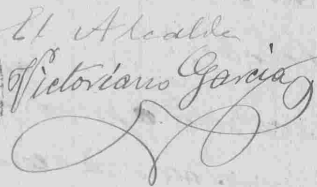 El Alcalde
Victoriano Garcia